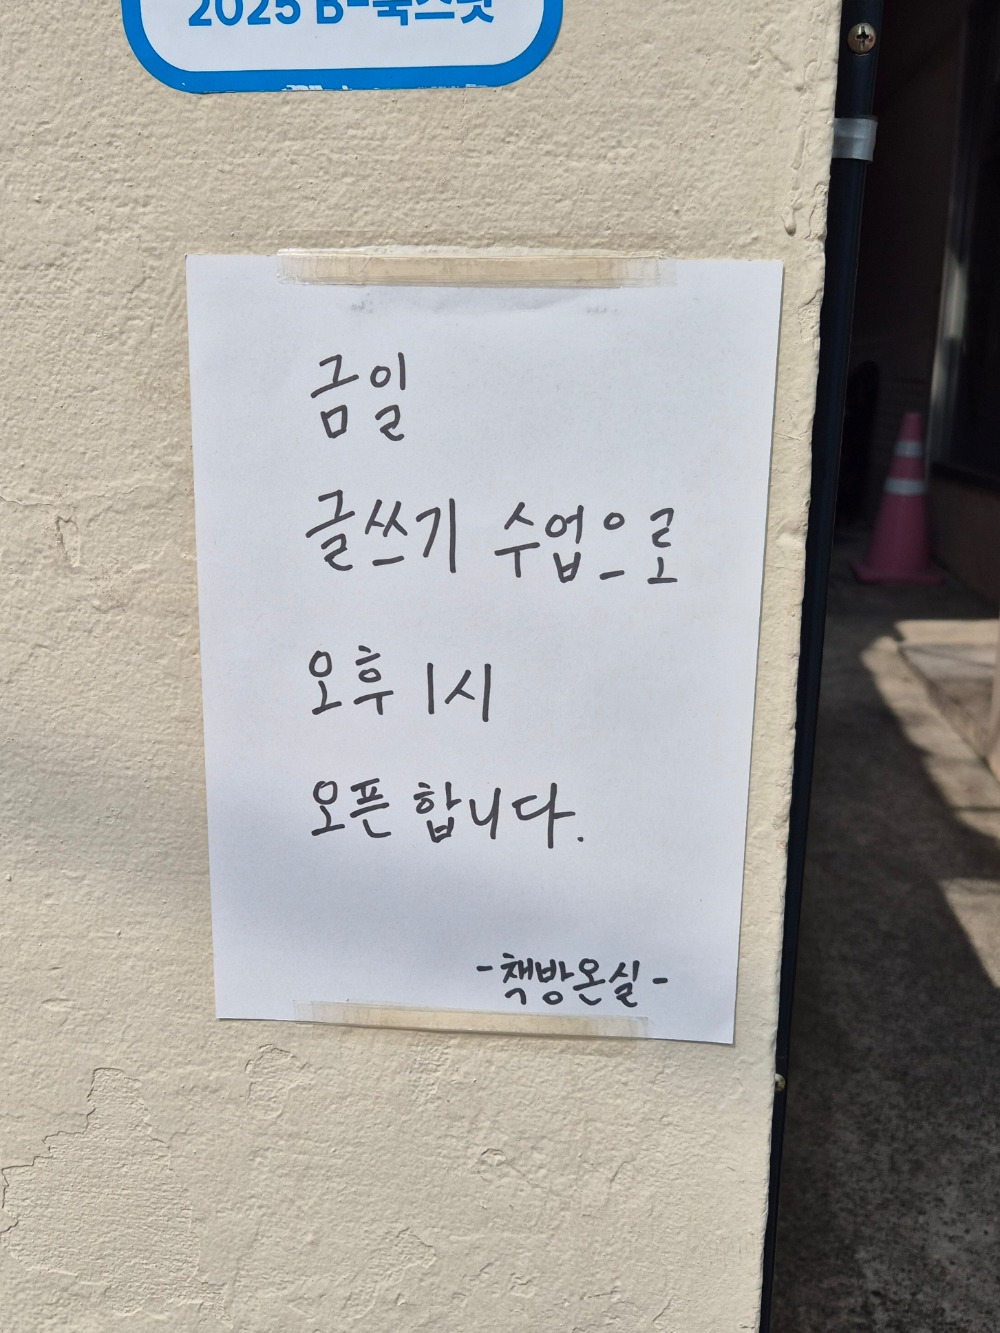 2025 B-북스팟
금일
글쓰기 수업으로
오후 1시
오픈 합니다.
-책방온실-